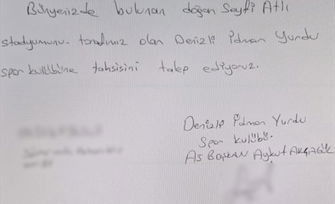 Bünyenizde bulunan doğan Seyfi Atlı
stadyumunu. tarafımız olan Denizli İdman Yurdu
spor kulübüne tahsisini talep ediyoruz.
Denizli İdman Yurdu
Spor kulübü.
As Başkan Aykut